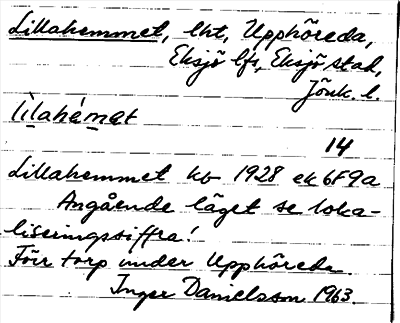 Lillahemmet, lht, Upphöreda,
Eksjö lfs, Eksjö stad,
Jönk. l.
lìlahémat
14
Lillahemmet kb 1928 ek 6F9a
Angående läget se loka-
liseringssiffra!
Förr torp under Upphöreda.
Inger Danielsson 1963.